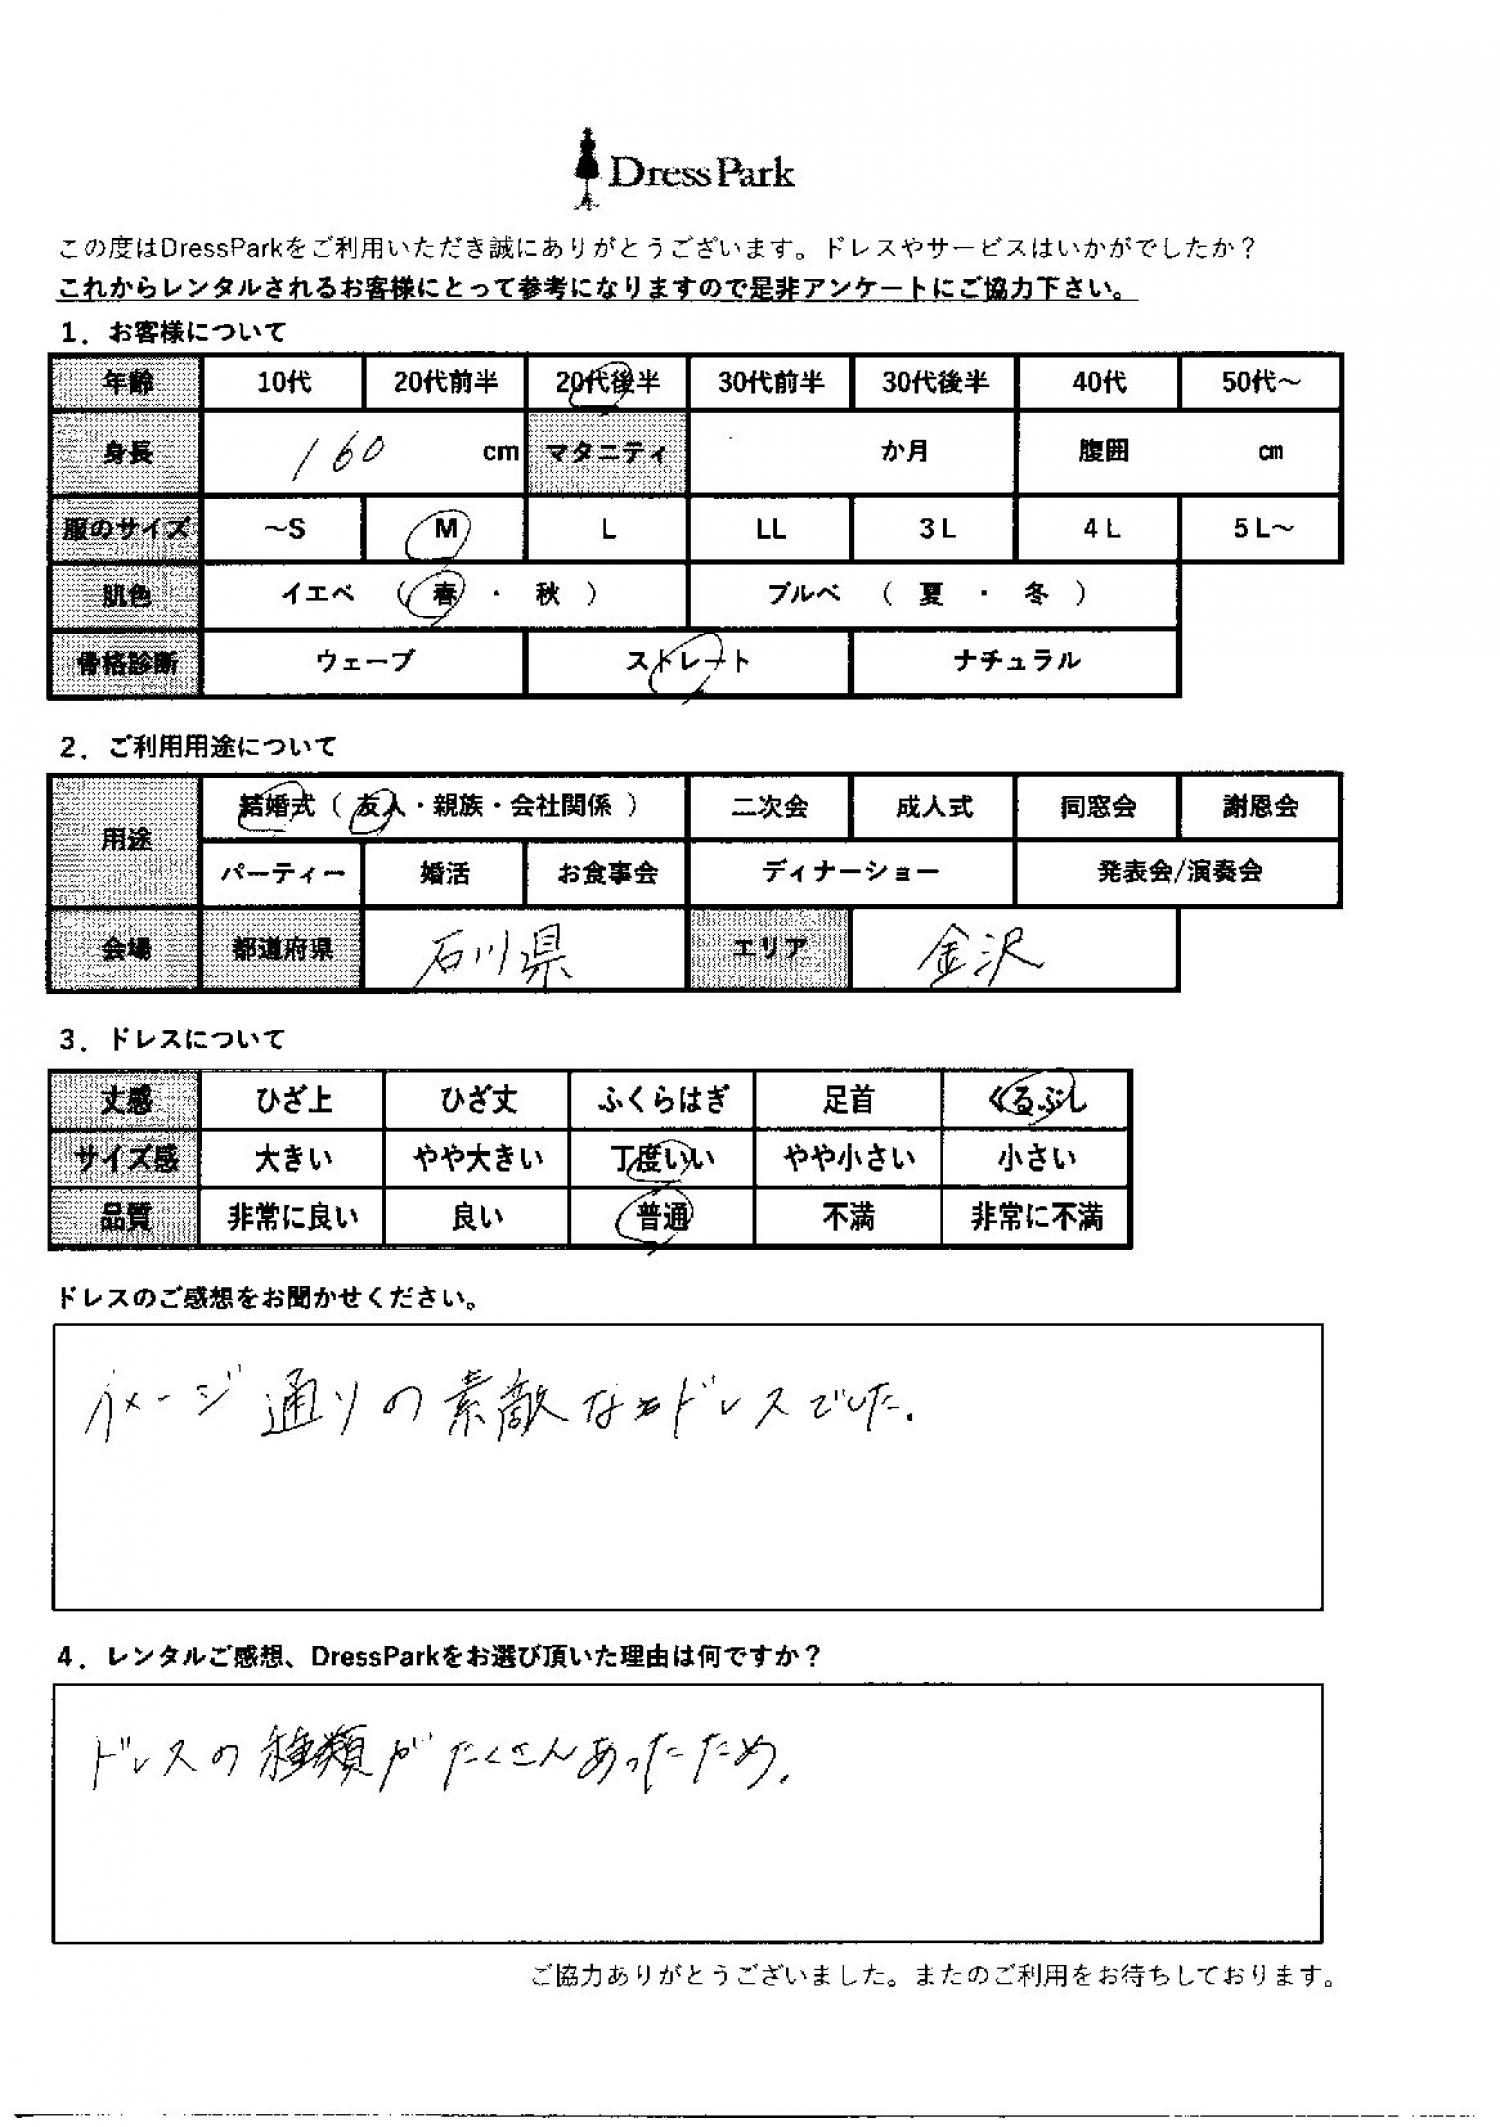 DressPark
この度はDressParkをご利用いただき誠にありがとうございます。ドレスやサービスはいかがでしたか？
これからレンタルされるお客様にとって参考になりますので是非アンケートにご協力下さい。
1．お客様について
年齢 10代 20代前半 20代後半 30代前半 30代後半 40代 50代～
身長 160 cm マタニティ か月 腹囲 cm
服のサイズ ～S M L LL 3L 4L 5L～
肌色 イエベ （ 春 ・ 秋 ） ブルベ （ 夏 ・ 冬 ）
骨格診断 ウェーブ ストレート ナチュラル
2．ご利用用途について
用途 結婚式（ 友人・親族・会社関係 ） 二次会 成人式 同窓会 謝恩会
パーティー 婚活 お食事会 ディナーショー 発表会/演奏会
会場 都道府県 石川県 エリア 金沢
3．ドレスについて
丈感 ひざ上 ひざ丈 ふくらはぎ 足首 くるぶし
サイズ感 大きい やや大きい 丁度いい やや小さい 小さい
品質 非常に良い 良い 普通 不満 非常に不満
ドレスのご感想をお聞かせください。
イメージ通りの素敵なドレスでした.
4．レンタルご感想、DressParkをお選び頂いた理由は何ですか？
ドレスの種類がたくさんあったため.
ご協力ありがとうございました。またのご利用をお待ちしております。